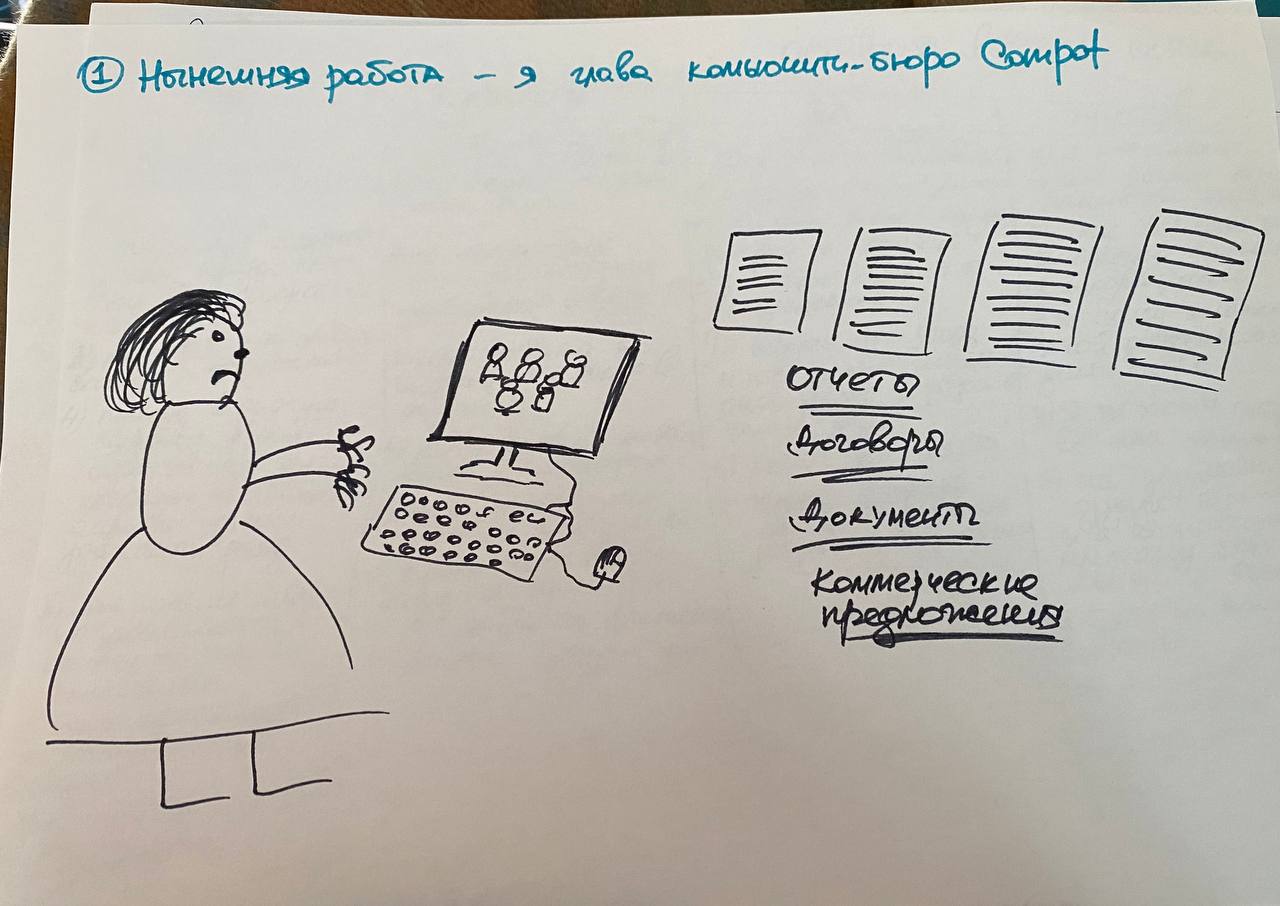 1 Нынешняя работа – я глава комьюнити-бюро Compot
Отчеты
Договоры
Документы
Коммерческие
предложения